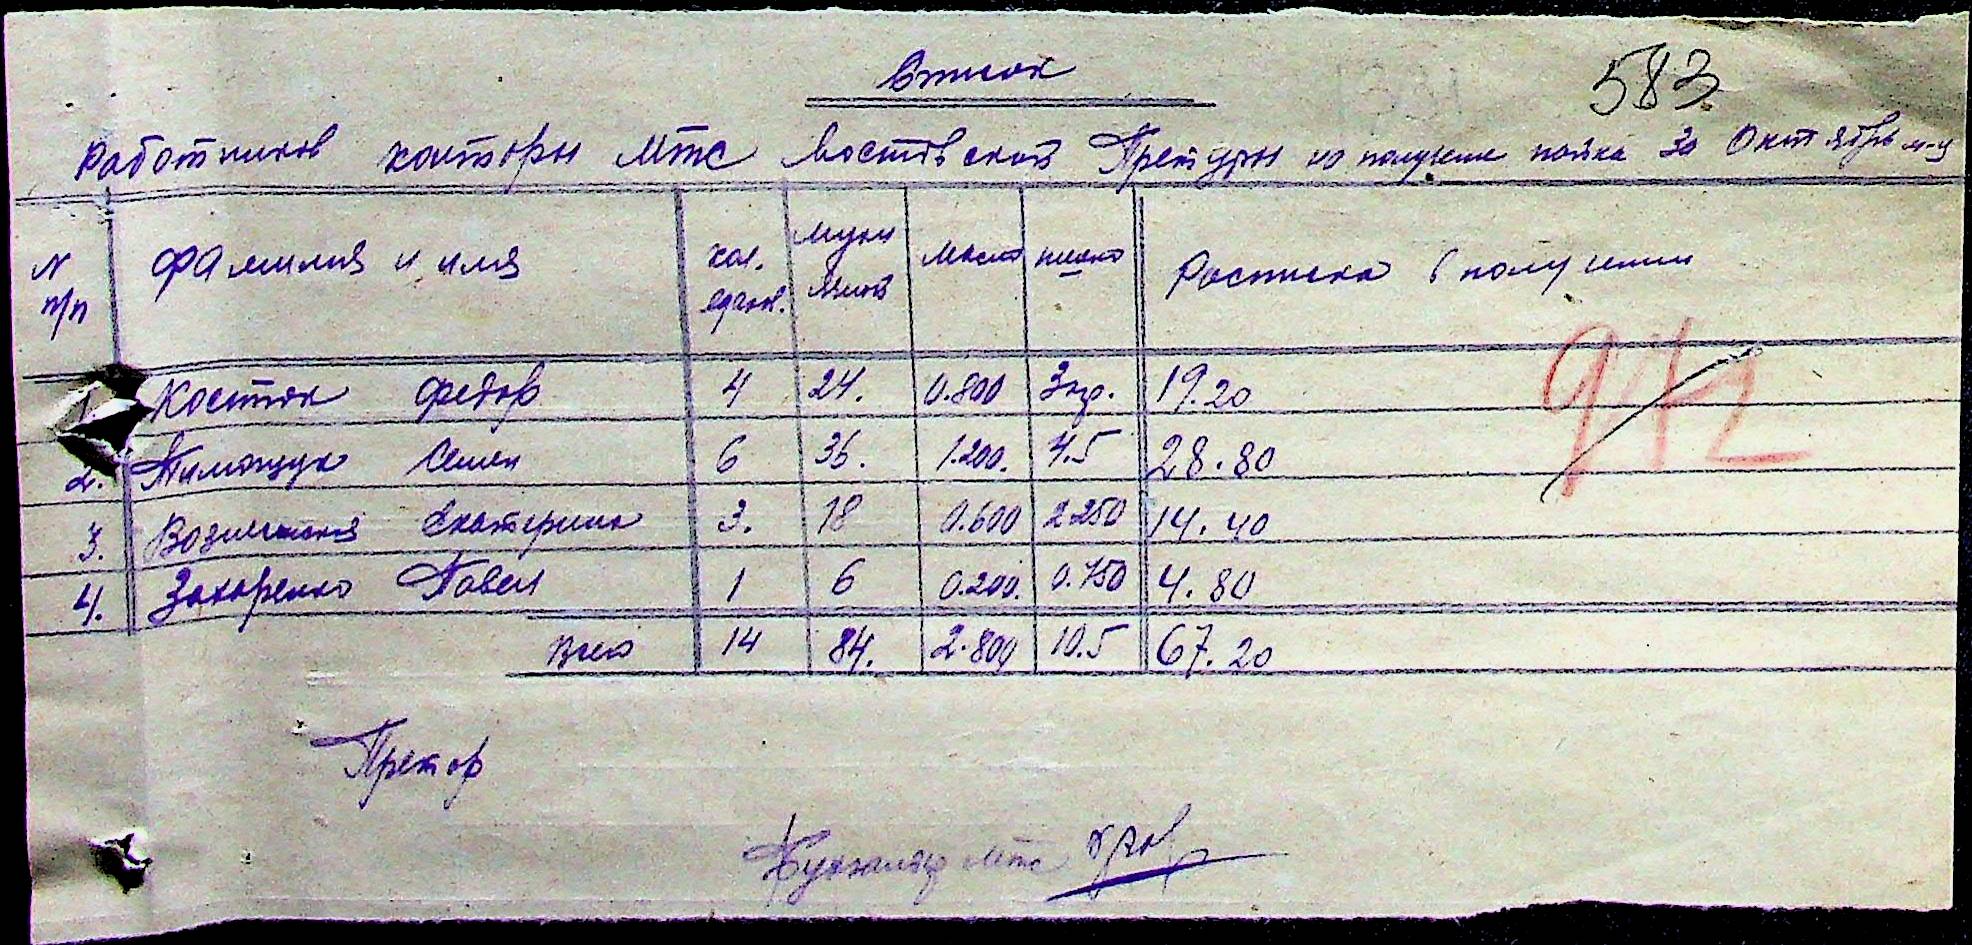 Список
583
Работников конторы МТС Преторы на получение пайка за Октябрь м-ц
N п/п | Фамилия и имя | кол. едоков. | муки | масло | Расписка в получении
1. Костюк Федор 4 24. 0.800 3кг. 19.20
2. Тимощук Семен 6 36. 1.200. 4.5 28.80
3. Екатерина 3. 18 0.600 2.250 14.40
4. Захаренко Павел 1 6 0.200. 0.750 4.80
Всего 14 84. 2.800 10.5 67.20
Претор
Бухгалтер МТС